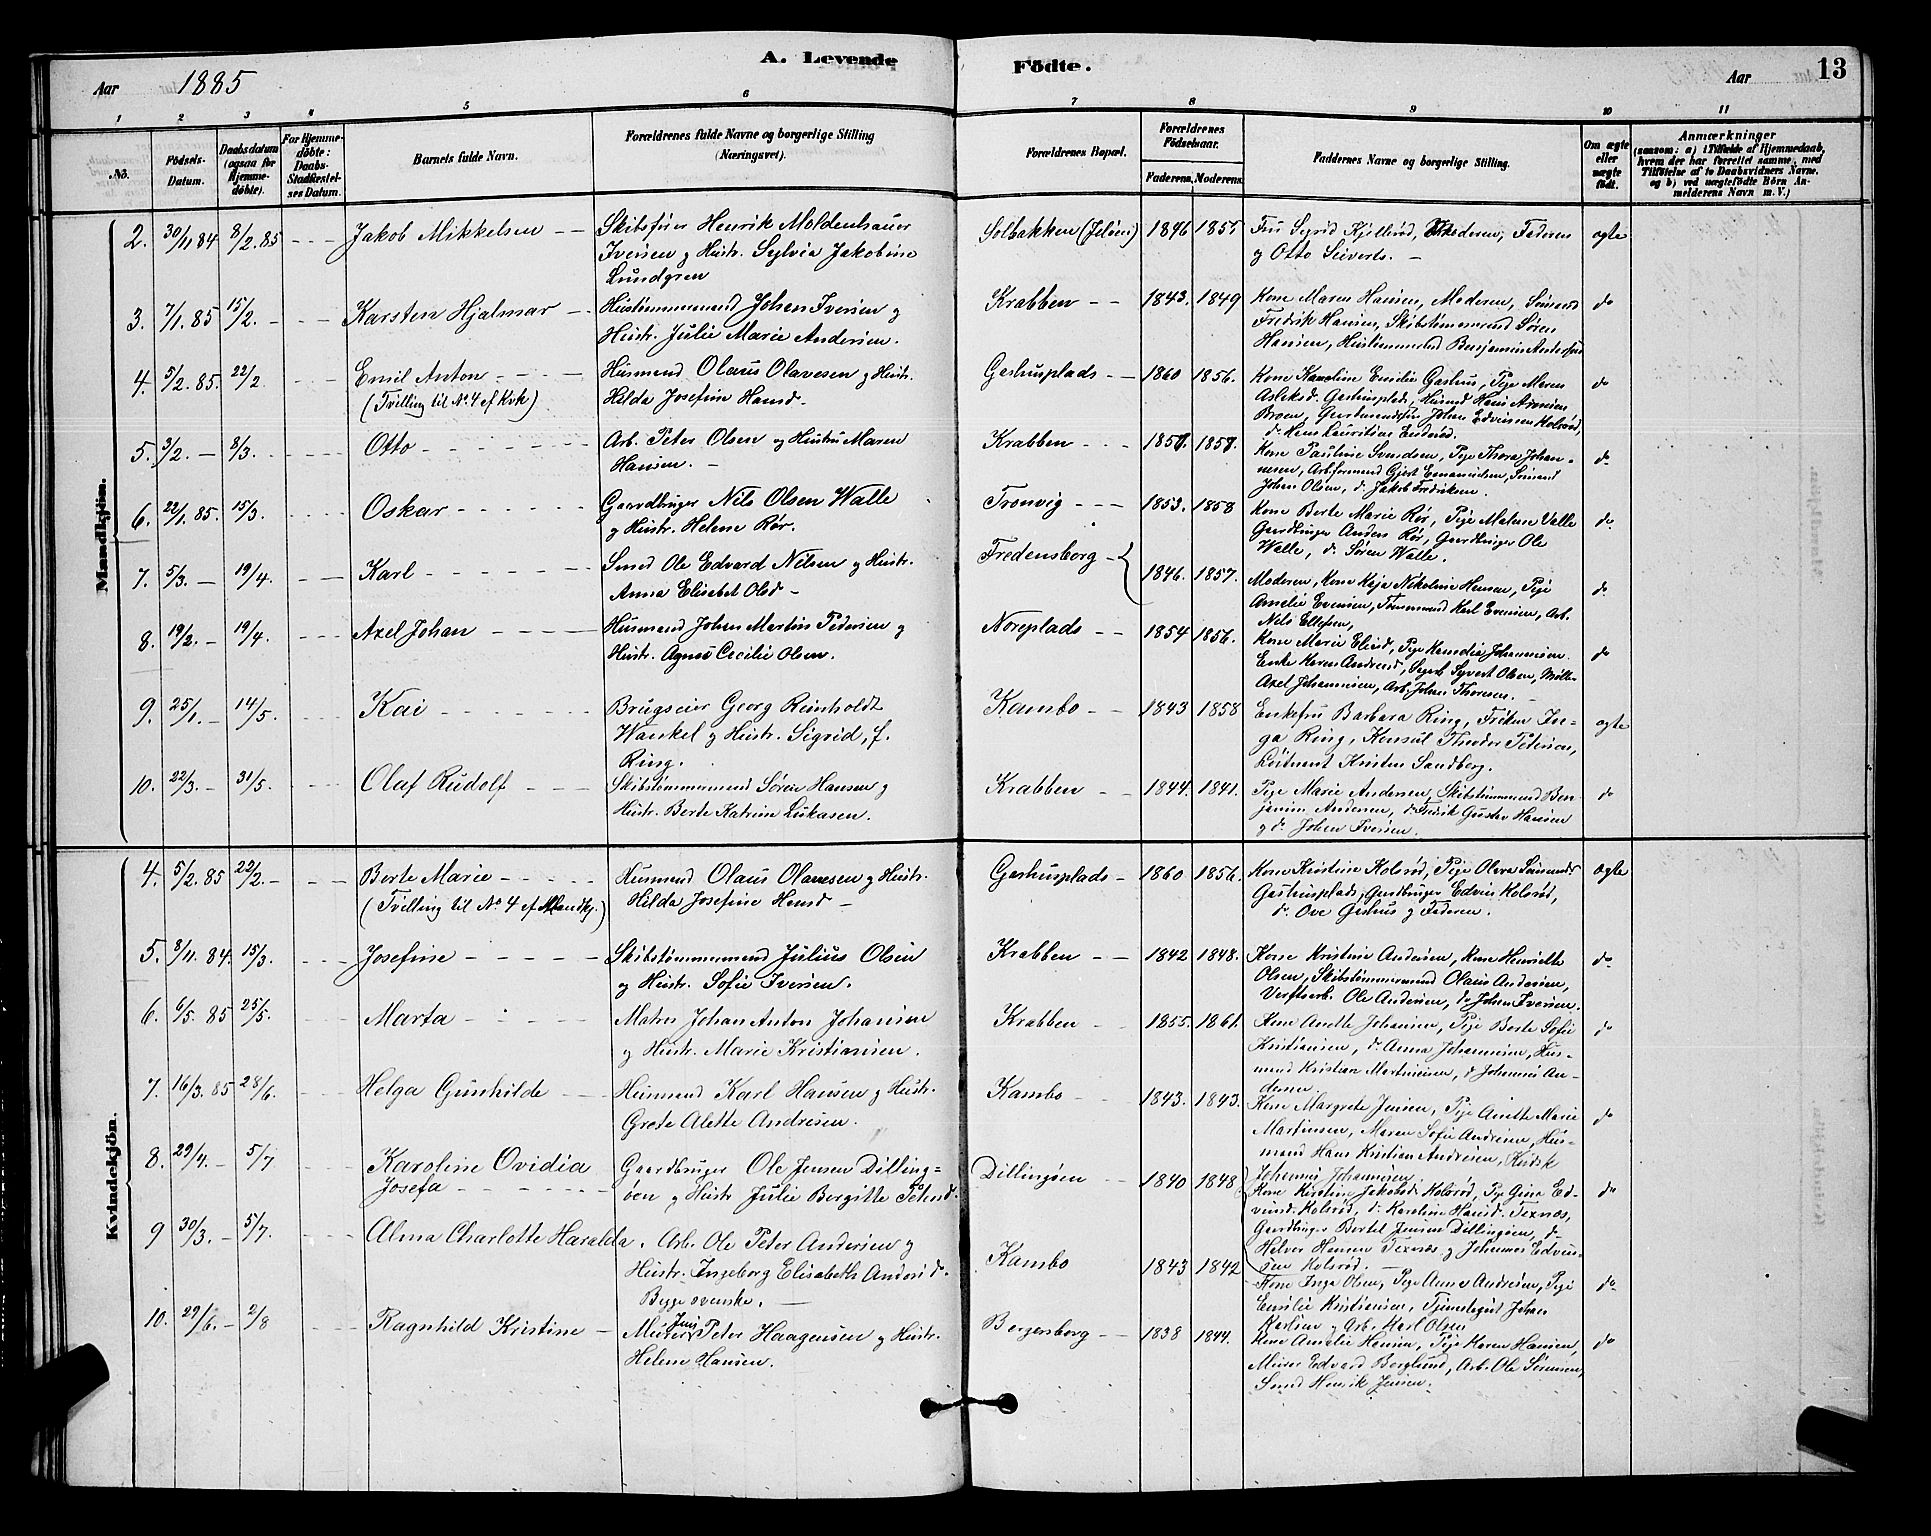 Aar 1885
A. Levende Födte.
Aar
13
1 2 3 4 5 6 7 8 9 10 11
No.
Födsels-Datum.
Daabsdatum (ogsaa for Hjemme-döbte).
For Hjemme-döbte: Daabs-Stadfæstel-ses Datum.
Barnets fulde Navn.
Forældrenes fulde Navne og borgerlige Stilling (Næringsvei).
Forældrenes Bopæl.
Forældrenes Födselsaar.
Faderens. Moderens.
Faddernes Navne og borgerlige Stilling.
Om ægte eller uægte födt.
Anmærkninger
(saasom: a) i Tilfælde af Hjemmedaab, hvem der har forrettet samme, med Tilföielse af to Daabsvidners Navne, og b) ved uægtefödte Börn An-melderens Navn m. V.)
Mandkjön.
2. 30/11 84 8/2. 85 Jakob Mikkelsen
Skibsfører Henrik Moldenhauer
Iversen og Hustr. Sylvia Jakobine
Lundgren
Solbakken (Jeløen) 1846 1855
Fru Sigrid Kjellerød, Moderen, Faderen
og Otto Sieverts. ægte
3. 7/1. 85 15/2. Karsten Hjalmar
Hustømmermand Johan Iversen og
Hustr. Julie Marie Andersen.
Krabben 1843. 1849
Kone Maren Hansen, Moderen, Sømand
Fredrik Hansen, Skibstømmermd Søren
Hansen, Hustømmermd Benjamin Andersen do
4. 5/2. 85. 22/2 Emil Anton
(Tvilling til No. 4 af Kvk)
Husmand Olaus Olavesen og Hustr.
Hilda Josefine Hansd.
Gashusplads 1860 1856.
Kone Karoline Emilie Gashus, Pige Maren
Aslaksd. Gashusplads, Husmd Hans Aronsen
Broen, Gaardmandssøn Johan Edvinsen Kolsrød,
do Hans Lauritsen Enderød. do
5. 3/2. 8/3. Otto
Arb. Peter Olsen og Hustru Maren
Hansen.
Krabben 1857. 1857.
Kone Pauline Svendsen, Pige Thora Johan-
nesen, Arbformand Gjert Emanuelsen, Sømand
Johan Olsen, do Jakob Fredriksen. do
6. 22/1. 85. 15/3. Oskar
Gaardbruger Nils Olsen Walle
og Hustr. Helene Rør.
Tronvig 1853. 1858
Kone Berte Marie Rør, Pige Maren Valle
Gaardbruger Anders Rør, Gaardbruger Ole
Walle, do Søren Walle. do
7. 5/3. 19/4. Karl
Smed Ole Edvard Nilsen og Hustr.
Anna Elisabet Olsd
Fredensborg 1846. 1857.
Moderen, Kone Kaja Nikoline Hansen, Pige
Amelie Evensen, Tømmermd Karl Evensen, Arb.
Nils Ellefsen, do
8. 19/2. 19/4. Axel Johan
Husmand Johan Martin Pedersen og
Hustr. Agnes Cecilie Olsen.
Noreplads 1854 1856.
Kone Marie Elisd, Pige Kamilla Johannesen
Enke Karen Andresd, Sagarb. Syvert Olsen, Møller
Axel Johannesen, Arb. Johan Thoresen. do
9. 25/1. 14/5. Kai
Brugseier Georg Reinholdt
Wankel og Hustr. Sigrid, f.
Ring.
Kambo 1843 1858
Enkefru Barbara Ring, Frøken In-
ga Ring, Konsul Theodor Petersen,
Løitnant Kristen Sandberg. ægte
10. 22/3. 31/5. Olaf Rudolf
Skibstømmermand Søren Hansen og
Hustr. Berte Katrine Lukasen.
Krabben 1844. 1841.
Pige Marie Andersen, Skibstømmermd Ben-
jamin Andersen, do Fredrik Gustav Hansen
og do Johan Iversen. do
Kvindekjön.
4. 5/2. 85 22/2. Berte Marie
(Tvilling til No 4 af Mandkj.)
Husmand Olaus Olavesen og Hustr.
Hilda Josefine Hansd
Gashusplads 1860 1856.
Kone Kristine Kolsrød, Pige Olava Simensd
Gashusplads, Gaardbruger Edvin Kolsrød,
do Ove Gashus og Faderen. ægte
5. 8/11. 84. 15/3. Josefine
Skibstømmermand Julius Olsen
og Hustr. Sofie Iversen.
Krabben 1842 1848.
Kone Kristine Andersen, Kone Henriette
Olsen, Skibstømmermand Olaus Andersen,
Verftsarb. Ole Andersen, do Johan Iversen. do
6. 6/5. 85 25/5. Marta
Matros Johan Anton Johansen
og Hustr. Marie Kristiansen.
Krabben 1855. 1861.
Kone Anette Johansen, Pige Berte Sofie
Kristiansen, do Anna Johannesen, Hus-
mand Kristian Martinsen, do Johannes An-
dersen. do
7. 16/3. 85 28/6. Helga Gunhilde
Husmand Karl Hansen og Hustr.
Grete Alette Andresen.
Kambo 1843. 1843.
Kone Margrete Jensen, Pige Anette Marie
Martinsen, Maren Sofie Andresen, Hus-
mand Hans Kristian Andresen, Kudsk
Johannes Johannesen. do
8. 29/4. 5/7 Karoline Ovidia
Josefa
Gaardbruger Ole Jensen Dilling-
øen og Hustr Julie Bergitte Petersd.
Dillingøen 1840 1848
Kone Kirstine Jakobsd. Kolsrød, Pige Gina Ed-
vinsd. Kolsrød, do Karoline Hansd. Texnes,
Gaardbruger Bertel Jensen Dillingøen, do
Halvor Hansen Texnes og Johannes Edvin-
sen Kolsrød. do
9 30/3. 5/7. Alma Charlotte Haralda.
Arb. Ole Peter Andersen og
Hustr. Ingeborg Elisabeth Andersd.
Begge svenske.
Kambo 1843 1842
Kone Inga Olsen, Pige Anna Andresen, Pige
Emilie Kristiansen, Tjenestegut Johan
Karlsen og Arb. Karl Olsen do
10. 29/6. 2/8 Ragnhild Kristine
Murer Jens Peter Haagensen og Hustr.
Helene Hansen.
Bergersborg 1838 1844.
Kone Amalie Hansen, Pige Karen Hansen,
Murer Edvard Berglund, Arb. Ole Sørensen,
Smed Henrik Jensen. do